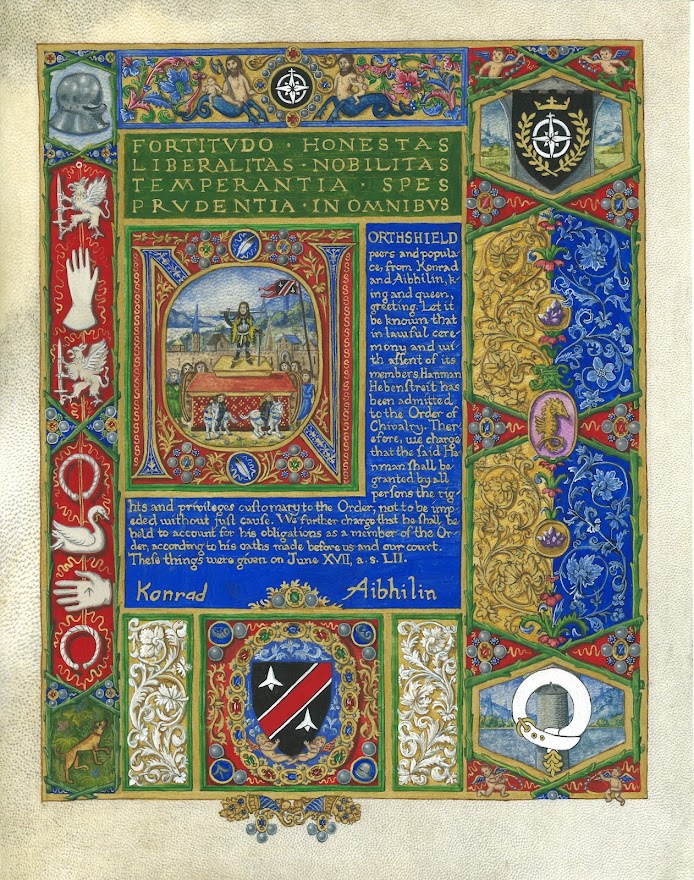 FORTITVDO · HONESTAS
LIBERALITAS · NOBILITAS
TEMPERANTIA · SPES
PRVDENTIA · IN OMNIBVS
NORTHSHIELD
peers and popula
ce, from Konrad
and Aibhilin, k
ing and queen,
greeting. Let it
be known that
in lawful cere
mony and wi
th aſſent of its
members Hanman
Hebenstreit has
been admitted
to the Order of
Chivalry. Ther
efore, we charge
that the ſaid Ha
nman ſhall be
granted by all
perſons the rig
hts and privileges customary to the Order, not to be imp
eded without just cause. We further charge that he ſhall be
held to account for his obligations as a member of the Or
der, according to his oaths made before us and our court.
Theſe things were given on June XVII, a. s. LII.
Konrad Aibhilin